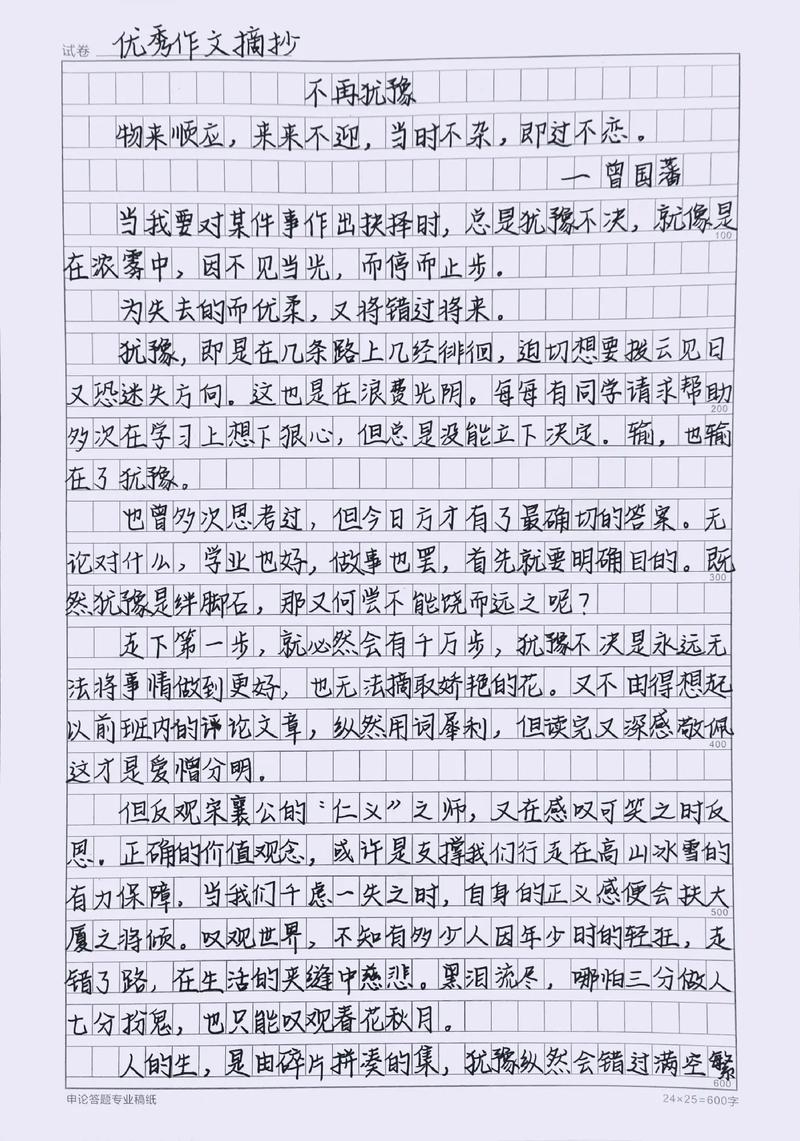 试卷 优秀作文摘抄
不再犹豫
物来顺应，来来不迎，当时不杂，即过不恋。
一曾国藩
当我要对某件事作出抉择时，总是犹豫不决，就像是
100
在浓雾中，因不见当光，而停而止步。
为失去的而优柔，又将错过将来。
犹豫，即是在几条路上几经徘徊，迫切想要拨云见日
又恐迷失方向。这也是在浪费光阴。每每有同学请求帮助
200
多次在学习上想下狠心，但总是没能立下决定。输，也输
在了犹豫。
也曾多次思考过，但今日方才有了最确切的答案。无
论对什么，学业也好，做事也罢，首先就要明确目的。既
300
然犹豫是绊脚石，那又何尝不能饶而远之呢？
走下第一步，就必然会有千万步，犹豫不决是永远无
法将事情做到更好，也无法摘取娇艳的花。又不由得想起
以前班内的评论文章，纵然用词犀利，但读完又深感敬佩
400
这才是爱憎分明。
但反观宋襄公的“仁义”之师，又在感叹可笑之时反
思。正确的价值观念，或许是支撑我们行走在高山冰雪的
有力保障。当我们千虑一失之时，自身的正义感便会扶大
500
厦之将倾。叹观世界，不知有多少人因年少时的轻狂，走
错了路，在生活的夹缝中慈悲。黑泪流尽，哪怕三分做人
七分扮鬼，也只能叹观春花秋月。
人的生，是由碎片拼凑的集，犹豫纵然会错过满空繁
600
申论答题专业稿纸 24×25=600字